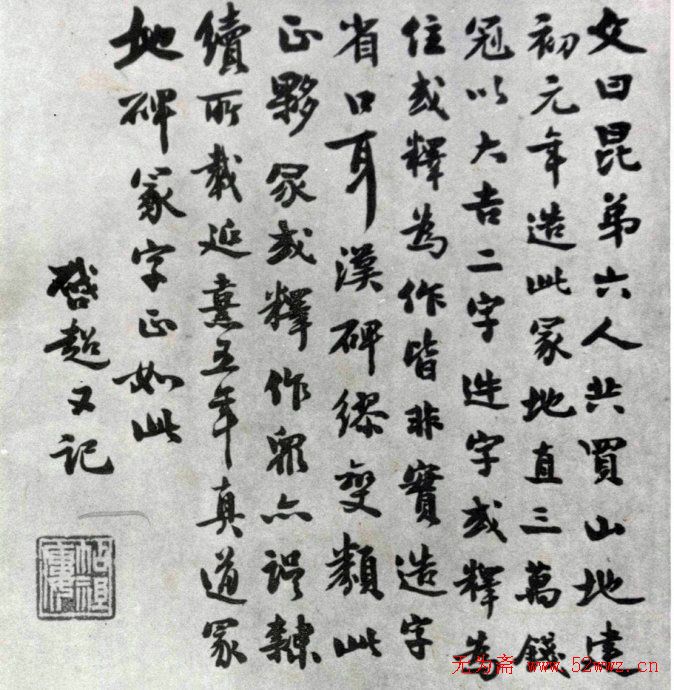 文曰昆弟六人共買山地建
初元年造此冢地直三萬錢
冠以大吉二字造字或釋為
住或釋為作皆非實造字
省口耳漢碑繆變類此
正夥冢或釋作亦誤隸
續所載延熹五年真道冢
地碑冢字正如此
啓超又記
无为斋 www.52wwz.cn